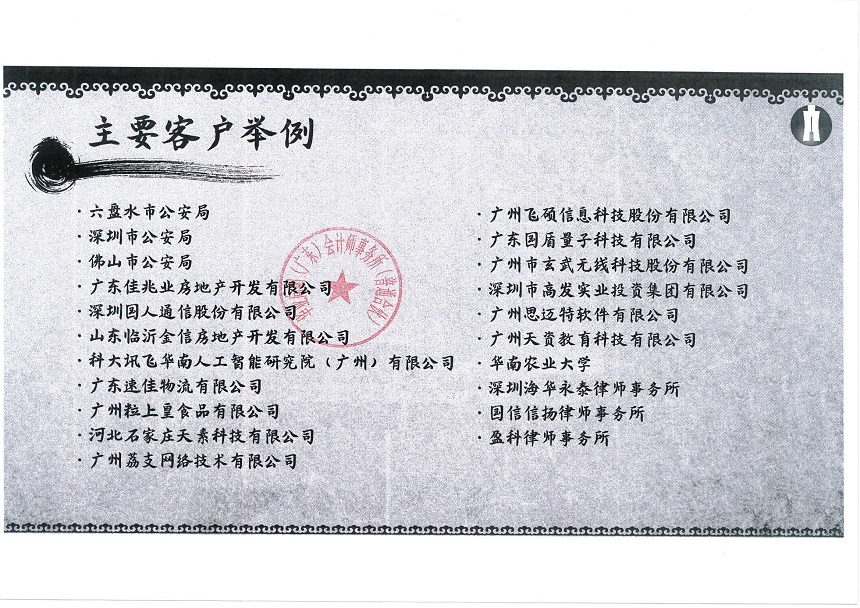 主要客户举例
·六盘水市公安局
·深圳市公安局
·佛山市公安局
·广东佳兆业房地产开发有限公司
·深圳国人通信股份有限公司
·山东临沂金信房地产开发有限公司
·科大讯飞华南人工智能研究院（广州）有限公司
·广东速佳物流有限公司
·广州粒上皇食品有限公司
·河北石家庄天素科技有限公司
·广州荔支网络技术有限公司
·广州飞硕信息科技股份有限公司
·广东国盾量子科技有限公司
·广州市玄武无线科技股份有限公司
·深圳市高发实业投资集团有限公司
·广州思迈特软件有限公司
·广州天资教育科技有限公司
·华南农业大学
·深圳海华永泰律师事务所
·国信信扬律师事务所
·盈科律师事务所
（广东）会计师事务所（普通合伙）